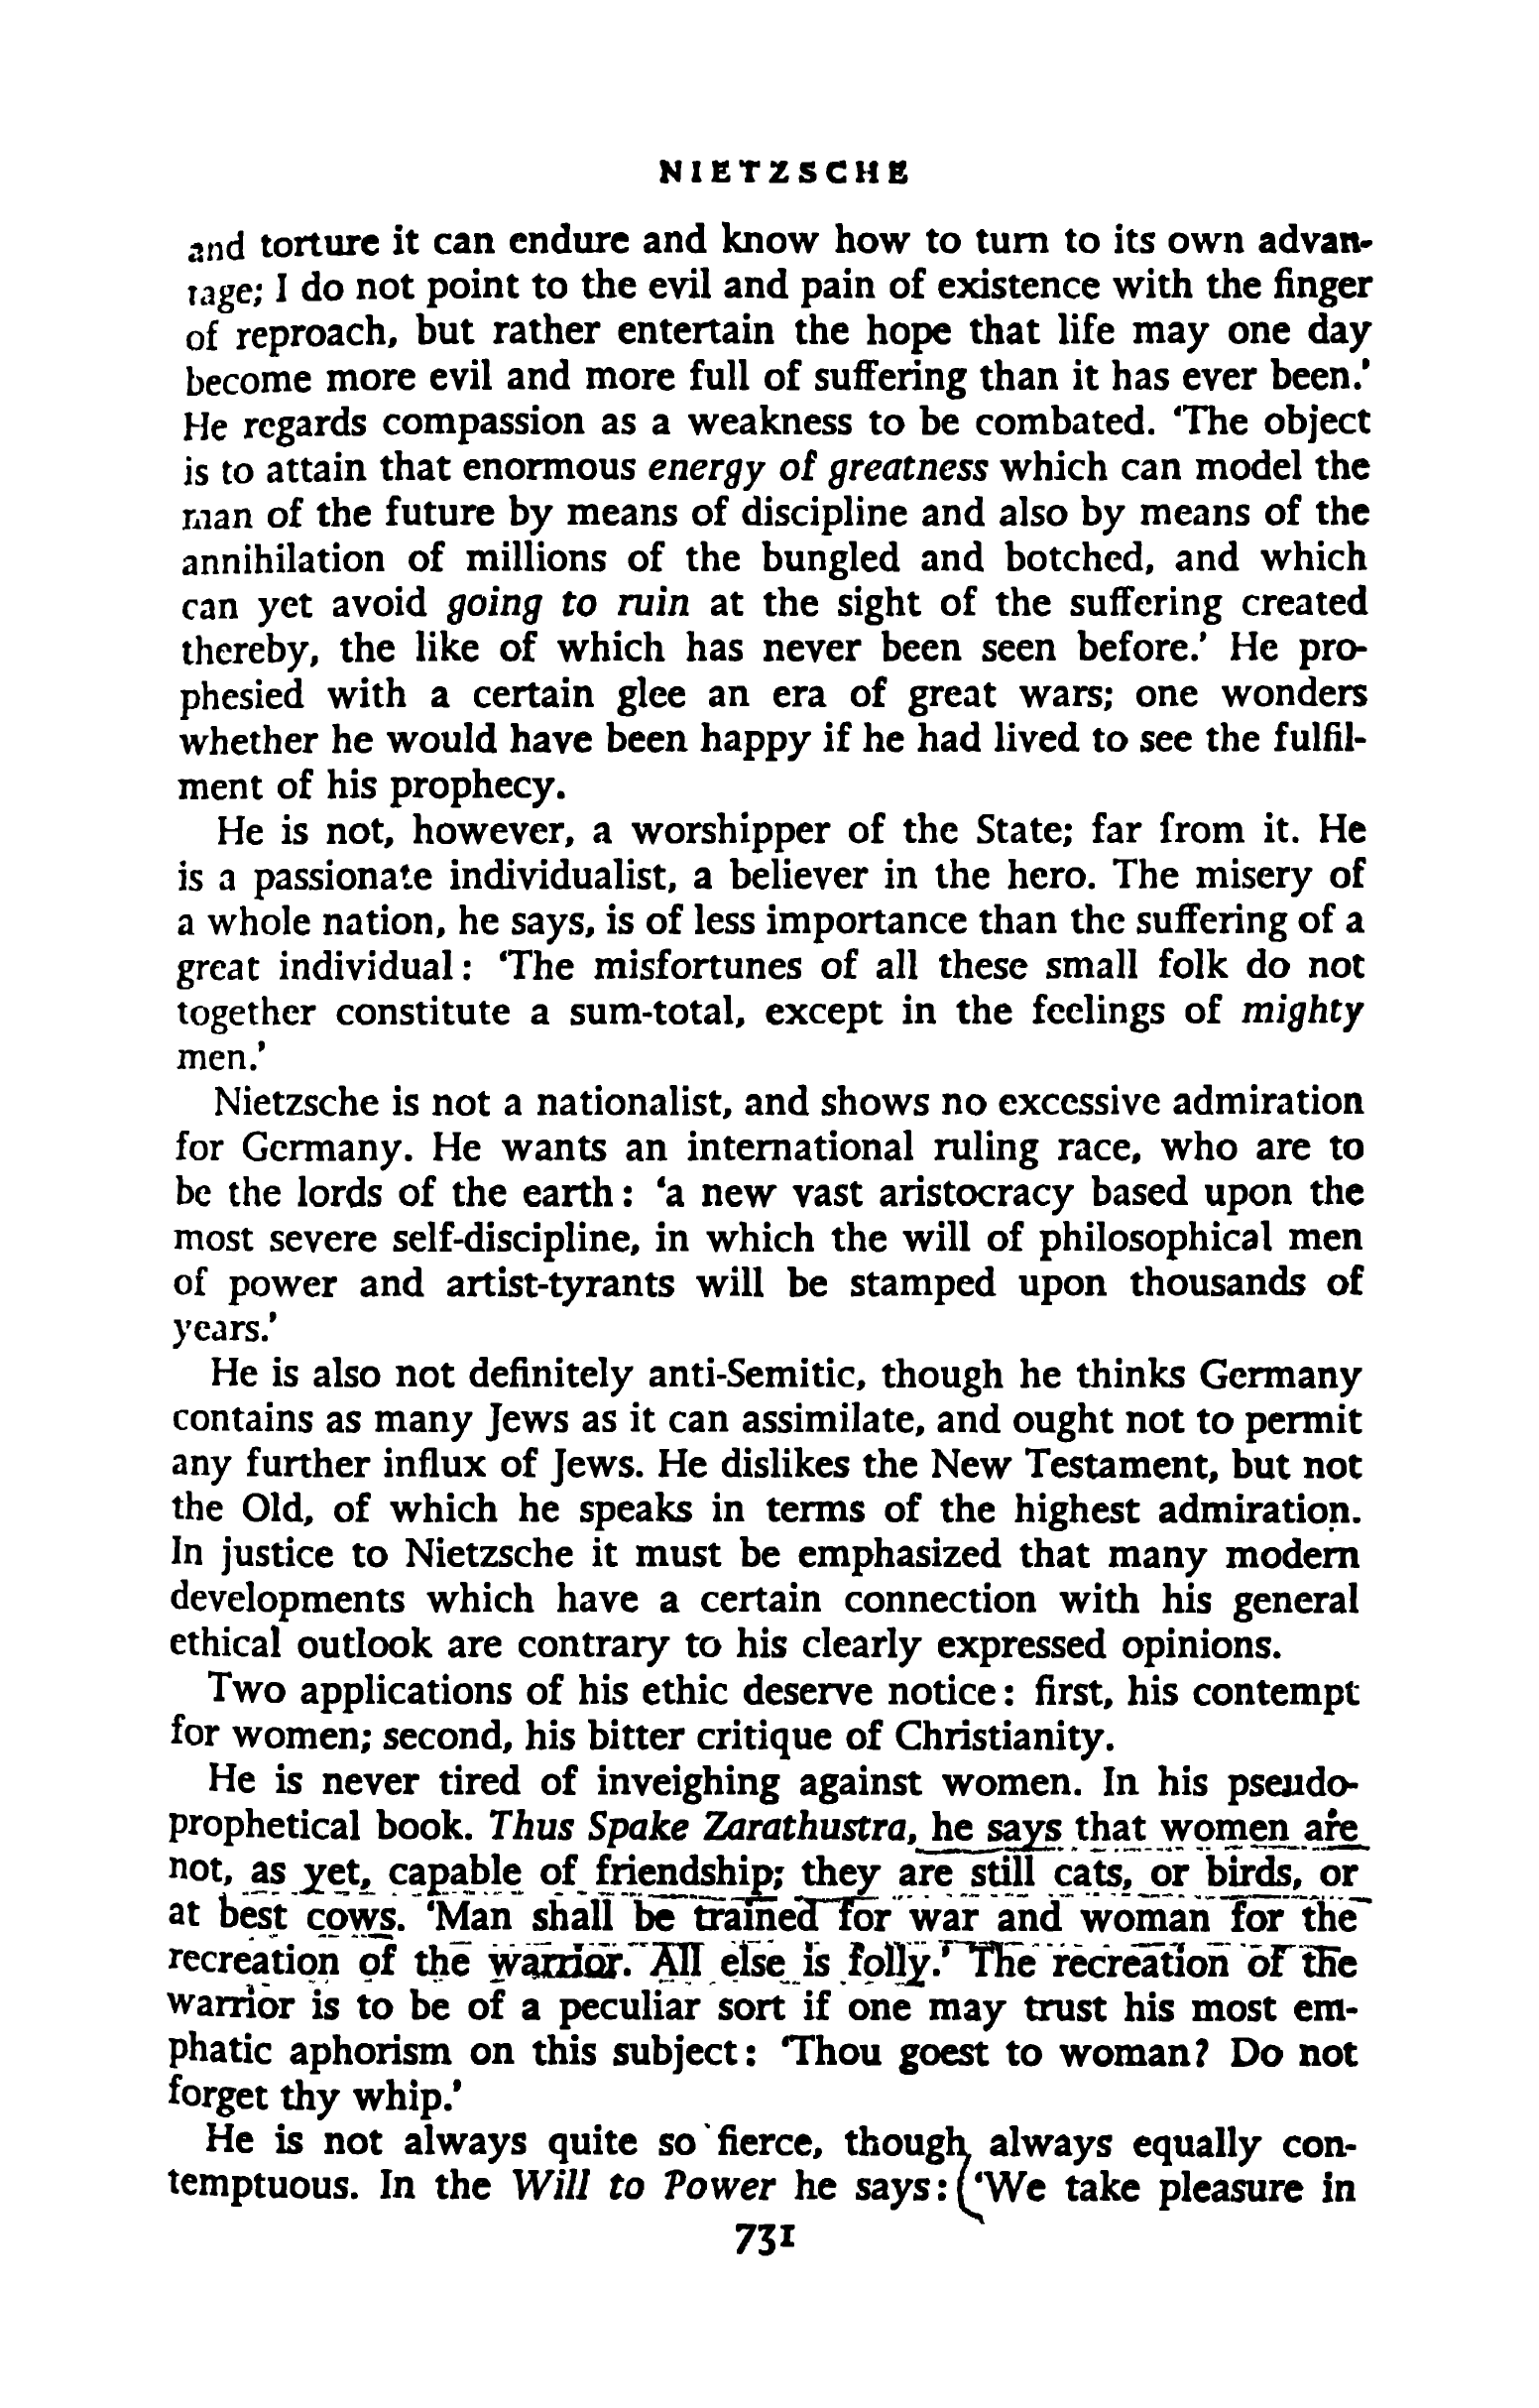 NIETZSCHE
and torture it can endure and know how to turn to its own advan-
tage; I do not point to the evil and pain of existence with the finger
of reproach, but rather entertain the hope that life may one day
become more evil and more full of suffering than it has ever been.'
He regards compassion as a weakness to be combated. 'The object
is to attain that enormous energy of greatness which can model the
man of the future by means of discipline and also by means of the
annihilation of millions of the bungled and botched, and which
can yet avoid going to ruin at the sight of the suffering created
thereby, the like of which has never been seen before.' He pro-
phesied with a certain glee an era of great wars; one wonders
whether he would have been happy if he had lived to see the fulfil-
ment of his prophecy.
He is not, however, a worshipper of the State; far from it. He
is a passionate individualist, a believer in the hero. The misery of
a whole nation, he says, is of less importance than the suffering of a
great individual: 'The misfortunes of all these small folk do not
together constitute a sum-total, except in the feelings of mighty
men.'
Nietzsche is not a nationalist, and shows no excessive admiration
for Germany. He wants an international ruling race, who are to
be the lords of the earth: 'a new vast aristocracy based upon the
most severe self-discipline, in which the will of philosophical men
of power and artist-tyrants will be stamped upon thousands of
years.'
He is also not definitely anti-Semitic, though he thinks Germany
contains as many Jews as it can assimilate, and ought not to permit
any further influx of Jews. He dislikes the New Testament, but not
the Old, of which he speaks in terms of the highest admiration.
In justice to Nietzsche it must be emphasized that many modern
developments which have a certain connection with his general
ethical outlook are contrary to his clearly expressed opinions.
Two applications of his ethic deserve notice: first, his contempt
for women; second, his bitter critique of Christianity.
He is never tired of inveighing against women. In his pseudo-
prophetical book. Thus Spake Zarathustra, he says that women are
not, as yet, capable of friendship; they are still cats, or birds, or
at best cows. 'Man shall be trained for war and woman for the
recreation of the warrior. All else is folly.' The recreation of the
warrior is to be of a peculiar sort if one may trust his most em-
phatic aphorism on this subject: 'Thou goest to woman? Do not
forget thy whip.'
He is not always quite so fierce, though always equally con-
temptuous. In the Will to Power he says: 'We take pleasure in
731